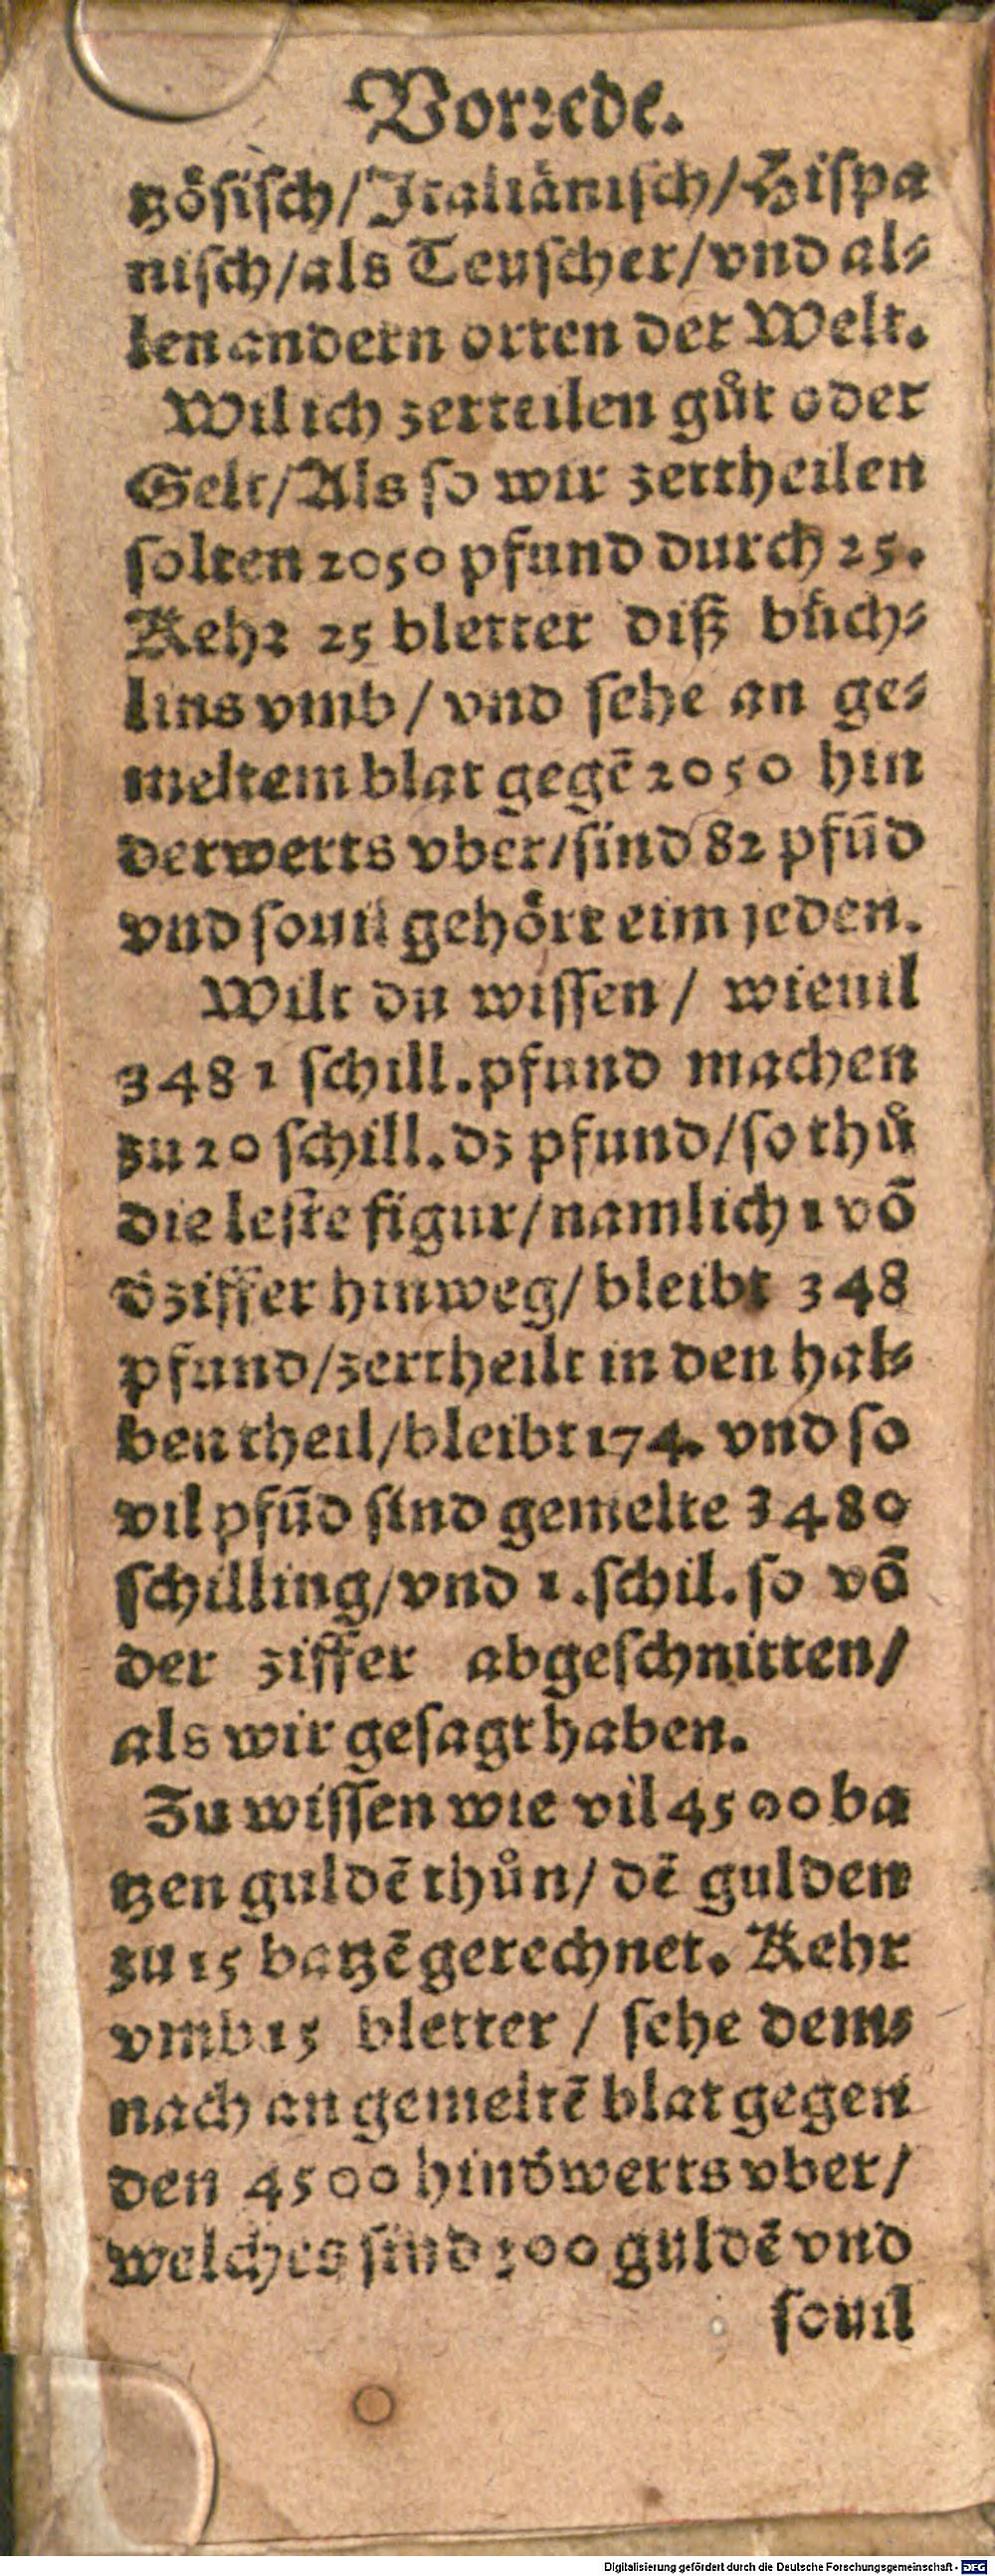 Vorꝛede.
tzoͤsisch/Italiaͤnisch/Hispa
nisch/als Teuscher/vnd al⸗
len andern orten der Welt.
Wil ich zerteilen guͦt oder
Gelt/Als so wir zertheilen
solten 2050 pfund durch 25.
Kehꝛ 25 bletter diß buͤch⸗
lins vmb/vnd sehe an ge⸗
meltem blat gegē 2050 hin
derwerts vber/sind 82 pfūd
vnd souil gehoͤrt eim jeden.
Wilt du wissen/ wieuil
3481 schill.pfund machen
zu 20 schill.dz pfund/so thuͦ
die leste figur/namlich 1 vō
d̄ ziffer hinweg/bleibt 348
pfund/zertheilt in den hal⸗
ben theil/bleibt 174. vnd so
vil pfūd sind gemelte 3480
schilling/vnd 1.schil.so vō
der ziffer abgeschnitten/
als wir gesagt haben.
Zu wissen wie vil 4500 ba
tzen guldē thuͦn/ dē gulden
zu 15 batzē gerechnet. Kehr
vmb 15 bletter / sehe dem⸗
nach an gemeltē blat gegen
den 4500 hind̄werts vber/
welches sind 300 guldē vnd
souil
Digitalisierung gefördert durch die Deutsche Forschungsgemeinschaft - DFG